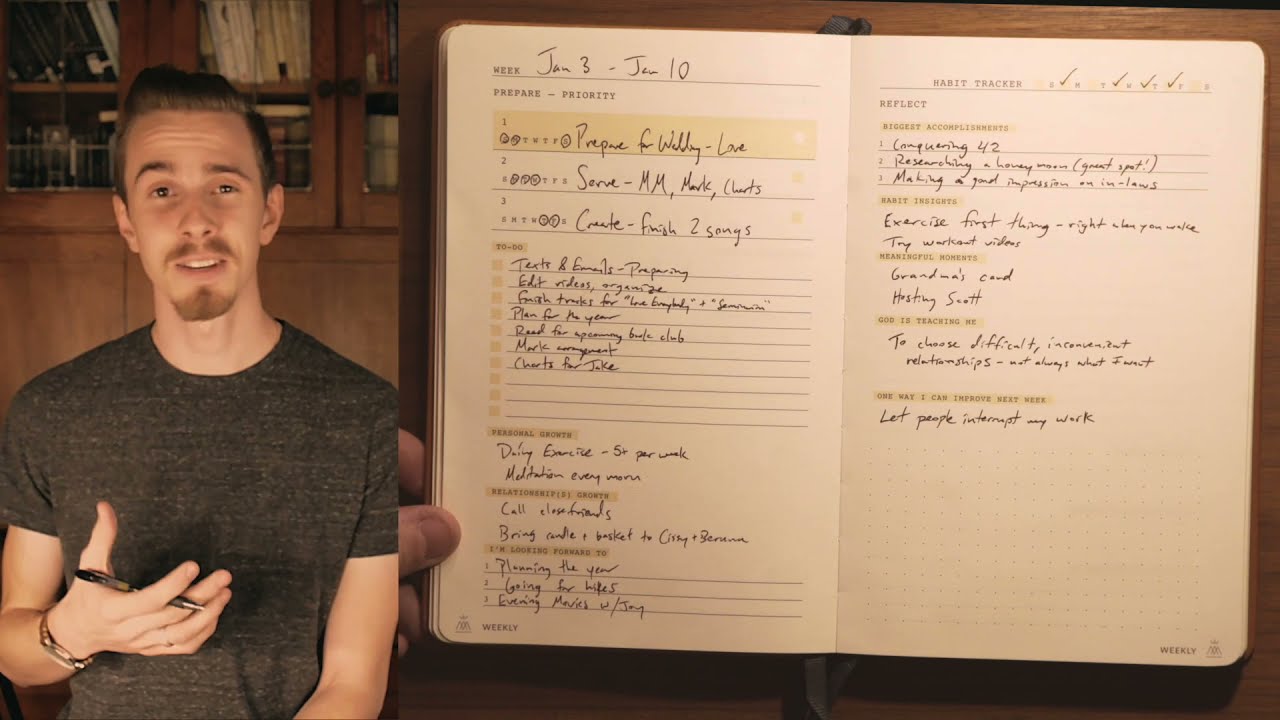 WEEK Jan 3 - Jan 10
PREPARE — PRIORITY
1
S M T W T F S Prepare for Wedding - Love
2
S M T W T F S Serve - MM, Mark, Charts
3
S M T W T F S Create - finish 2 songs
TO-DO
Texts & Emails - Preparing
Edit videos, organize
Finish tracks for "Love Everybody" +
Plan for the year
Read for upcoming book club
Mark arrangement
Charts for Jake
PERSONAL GROWTH
Daily Exercise - 5+ per week
Meditation every morn
RELATIONSHIP(S) GROWTH
Call close friends
Bring candle + basket to Cissy +
I'M LOOKING FORWARD TO
1 Planning the year
2 Going for hikes
3 Evening Movies w/ Joy
WEEKLY
HABIT TRACKER S M T W T F S
REFLECT
BIGGEST ACCOMPLISHMENTS
1 Conquering 42
2 Researching a honeymoon (great spot!)
3 Making a good impression on in-laws
HABIT INSIGHTS
Exercise first thing - right when you wake
Try workout videos
MEANINGFUL MOMENTS
Grandma's card
Hosting Scott
GOD IS TEACHING ME
To choose difficult, inconvenient
relationships - not always what I want
ONE WAY I CAN IMPROVE NEXT WEEK
Let people interrupt my work
WEEKLY